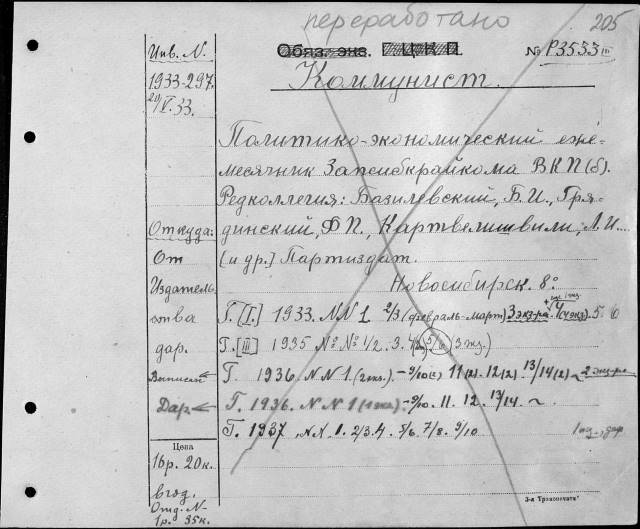 переработано
205
Инв. N.
Обяз. экз. Ц К П
№ Р3533 III
1933-297.
29/V.33.
Коммунист.
Политико-экономический еже-
месячник Запсибкрайкома ВКП(б).
Редколлегия: Базилевский, Б.И., Гря-
динский, Ф.П., Картвелишвили, Л.И....
Откуда:
От
[и др.] Партиздат.
Новосибирск. 8°.
Издатель
ства
Г. [I]. 1933. NN 1 2/3 (февраль-март) 3 экз-ра. 4 (4 экз). 5 6
дар.
Г. [III] 1935 № № 1/2. 3. 4 (2) 5/6 (3 экз.)
Выписан
Г. 1936. NN 1. (2 экз.) - 9/10 (2) 11 (2). 12 (2). 13/14 (2) ~ 2 экз-ра
Дар.
Г. 1936. N N 1 (1 экз.) - 9/10. 11. 12. 13/14. ~
Г. 1937 NN. 1. 2/3. 4. 5/6. 7/8. 9/10
Цена
16р. 20к.
в год.
Отд. N-
1р. 35к.
3-я Транспечати"